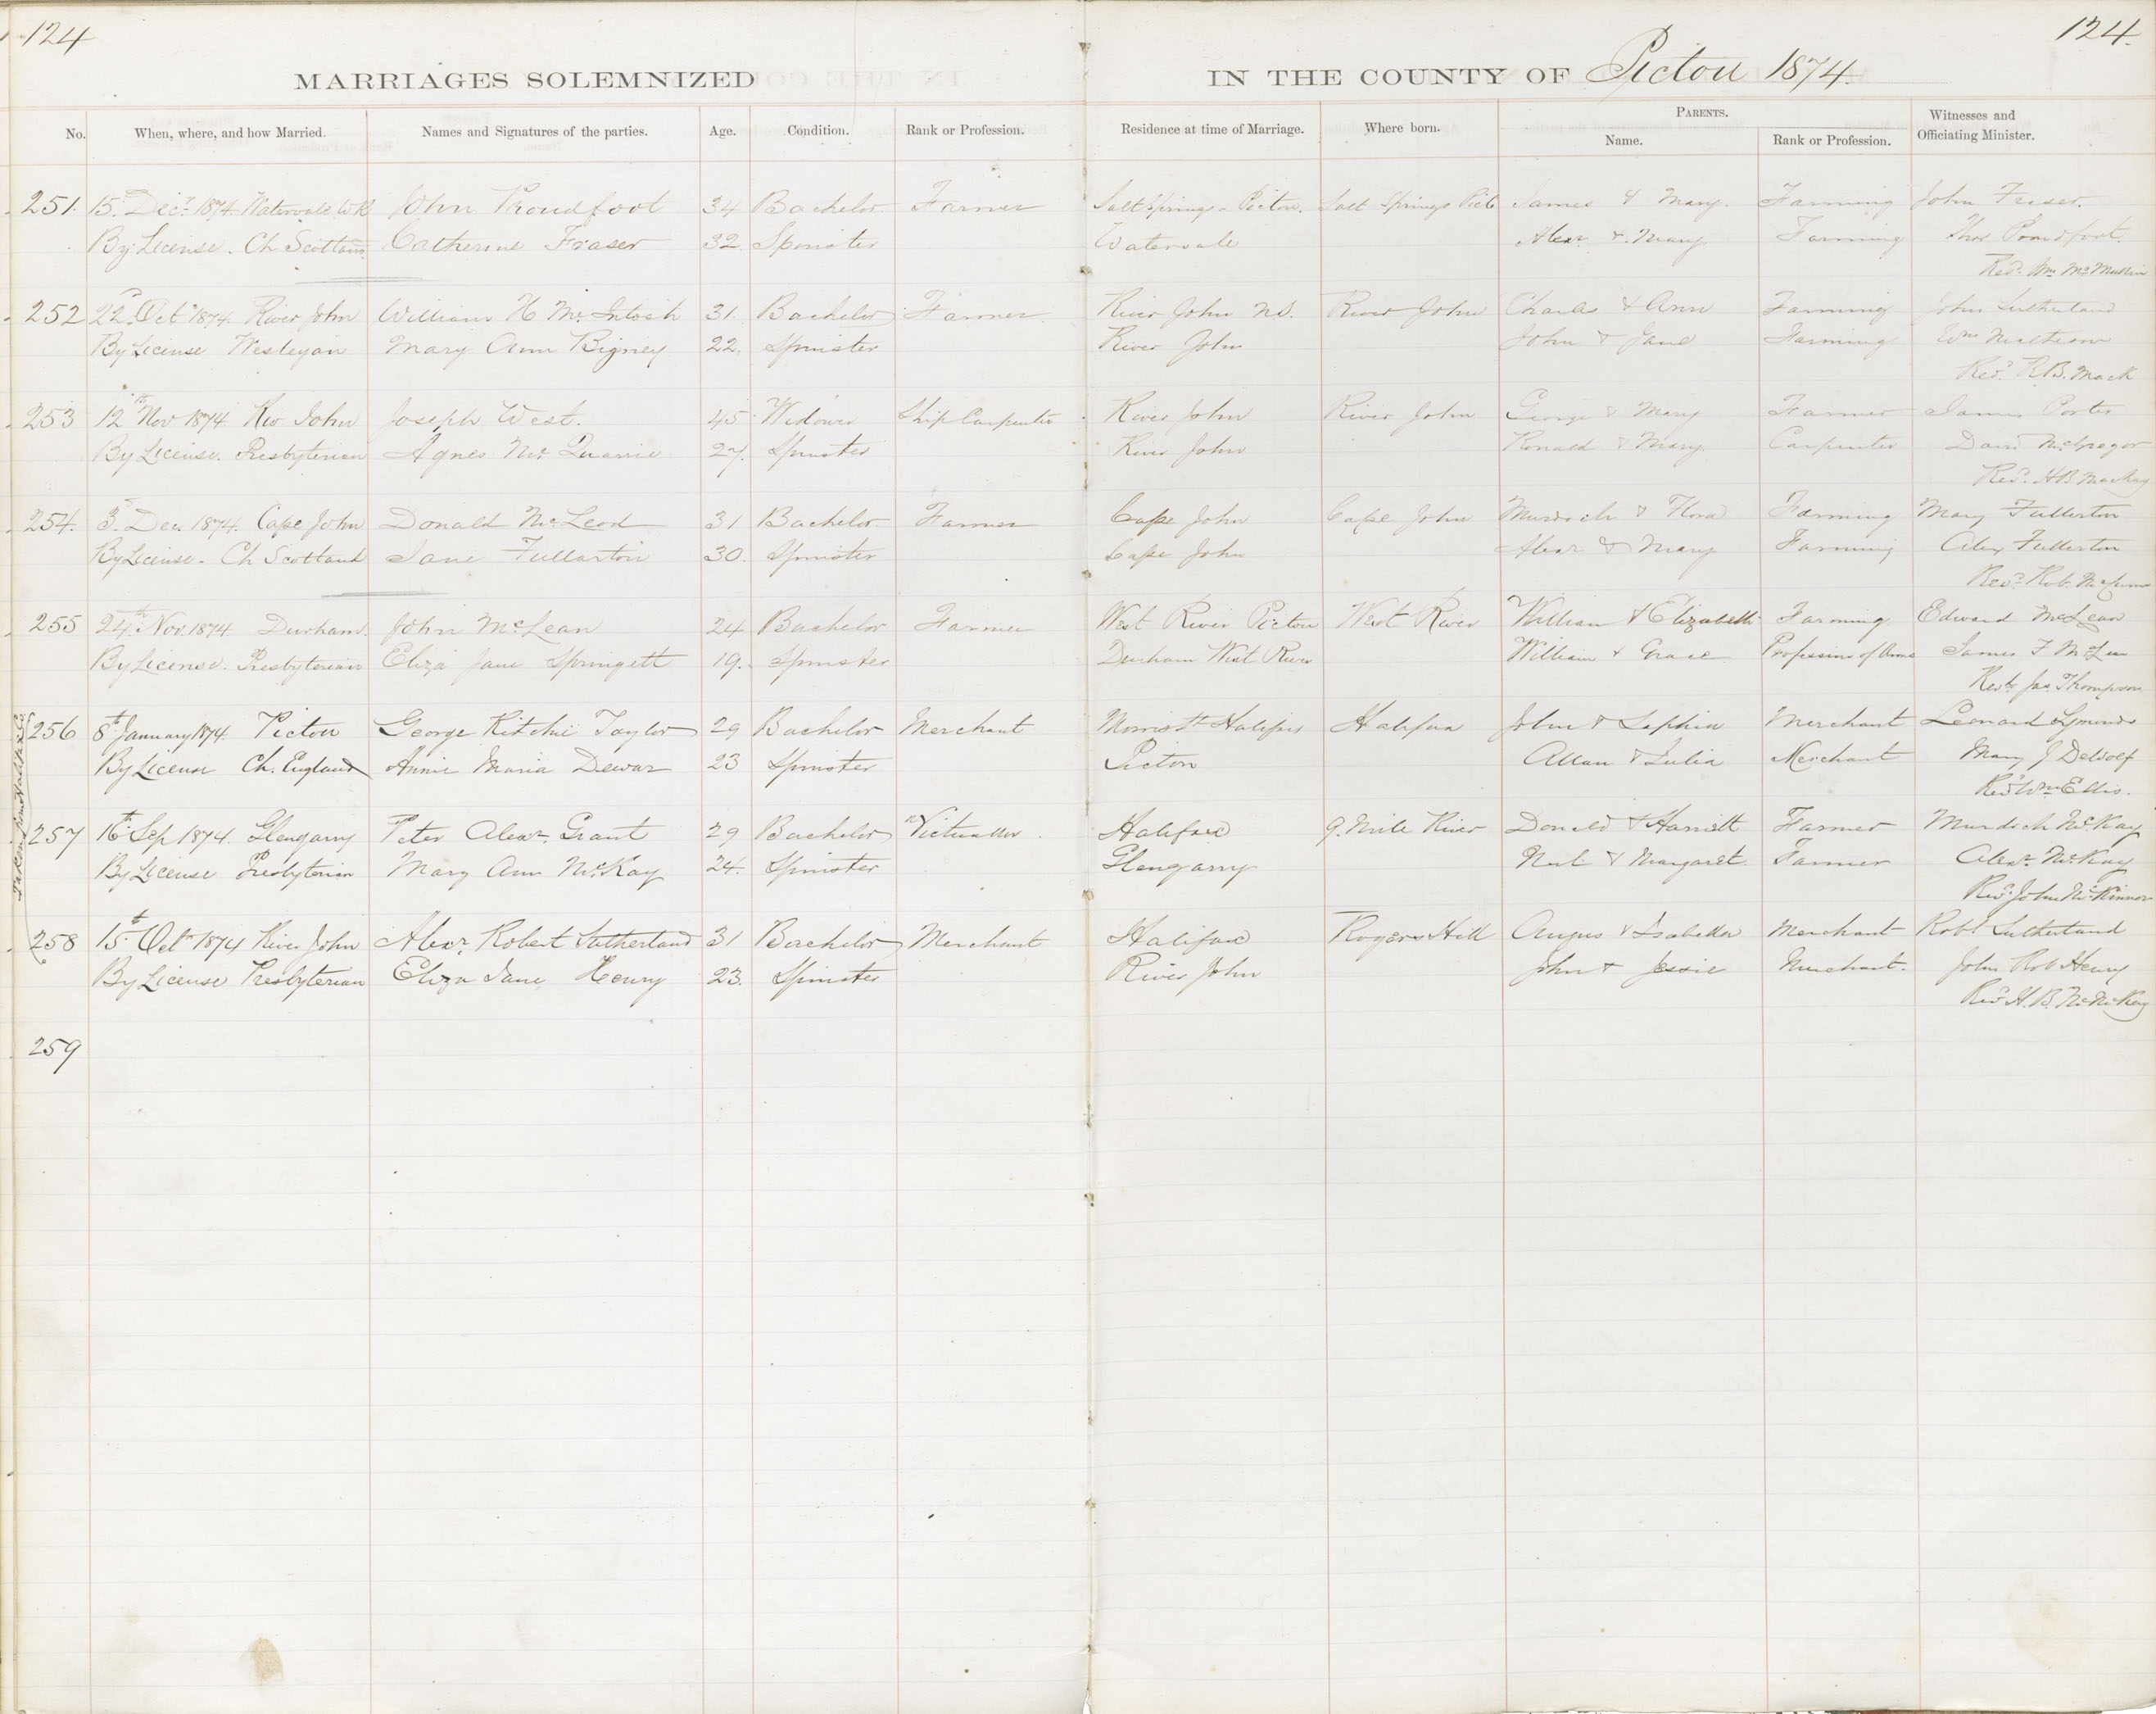 124 124.
MARRIAGES SOLEMNIZED IN THE COUNTY OF Pictou 1874.
No. When, where, and how Married. Names and Signatures of the parties. Age. Condition. Rank or Profession. Residence at time of Marriage. Where born. PARENTS. Name. Rank or Profession. Witnesses and Officiating Minister.
251. 15. Decr 1874. Watervale John Proudfoot 34 Bachelor Farmer Salt Springs - Pictou. Salt Springs James & Mary. Farming John Fraser.
By License. Ch Scotland Catherine Fraser 32 Spinster Watervale Alexr & Mary Farming Thos Proudfoot.
Revd. Wm McMullin
252 22d Oct 1874. River John William H McIntosh 31 Bachelor Farmer River John NS. River John Charles & Ann Farming John Sutherland
By License Wesleyan Mary Ann Bigney 22. Spinster River John John & Jane Farming Wm Matheson
Revd. R.B. Mack
253 12th Nov 1874. Riv John Joseph West. 45 Widower Ship Carpenter River John River John George & Mary Farmer James Porter
By License. Presbyterian Agnes McQuarrie 27. Spinster River John Ronald & Mary Carpenter David McGregor
Revd. HB MacKay
254. 3d Dec. 1874. Cape John Donald McLeod 31 Bachelor Farmer Cape John Cape John Murdoch & Flora Farming Mary Fullerton
By License - Ch Scotland Jane Fullarton 30. Spinster Cape John Alexr & Mary Farming Alex Fullerton
Revd. Rob.
255 24th Nov. 1874. Durham. John McLean 24 Bachelor Farmer West River Pictou West River William & Elizabeth Farming Edward McLean
By License. Presbyterian Eliza Jane Springett 19. Spinster Durham West River William & Grace Profession of Arms James F McLean
Revd. Jas Thompson
256 8th January 1874. Pictou George Ritchie Taylor 29 Bachelor Merchant Morris St Halifax Halifax John & Sophia Merchant Leonard Symonds
By License Ch. England Annie Maria Dewar 23 Spinster Pictou Allan & Julia Merchant Mary J DeWolf
Revd Wm Ellis.
257 16th Sep 1874. Glengarry Peter Alexr Grant 29 Bachelor Victualler Halifax 9. Mile River Donald & Harriett Farmer Murdoch McKay
By License Presbyterian Mary Ann McKay 24. Spinster Glengarry Neil & Margaret Farmer Alexr McKay
Revd John McKinnon
258 15th Octr 1874 River John Alexr Robert Sutherland 31 Bachelor Merchant Halifax Rogers Hill Angus & Isabella Merchant Robt Sutherland
By License Presbyterian Eliza Jane Henry 23. Spinster River John John & Jessie Merchant. John Rob Henry
Revd H. B.
259